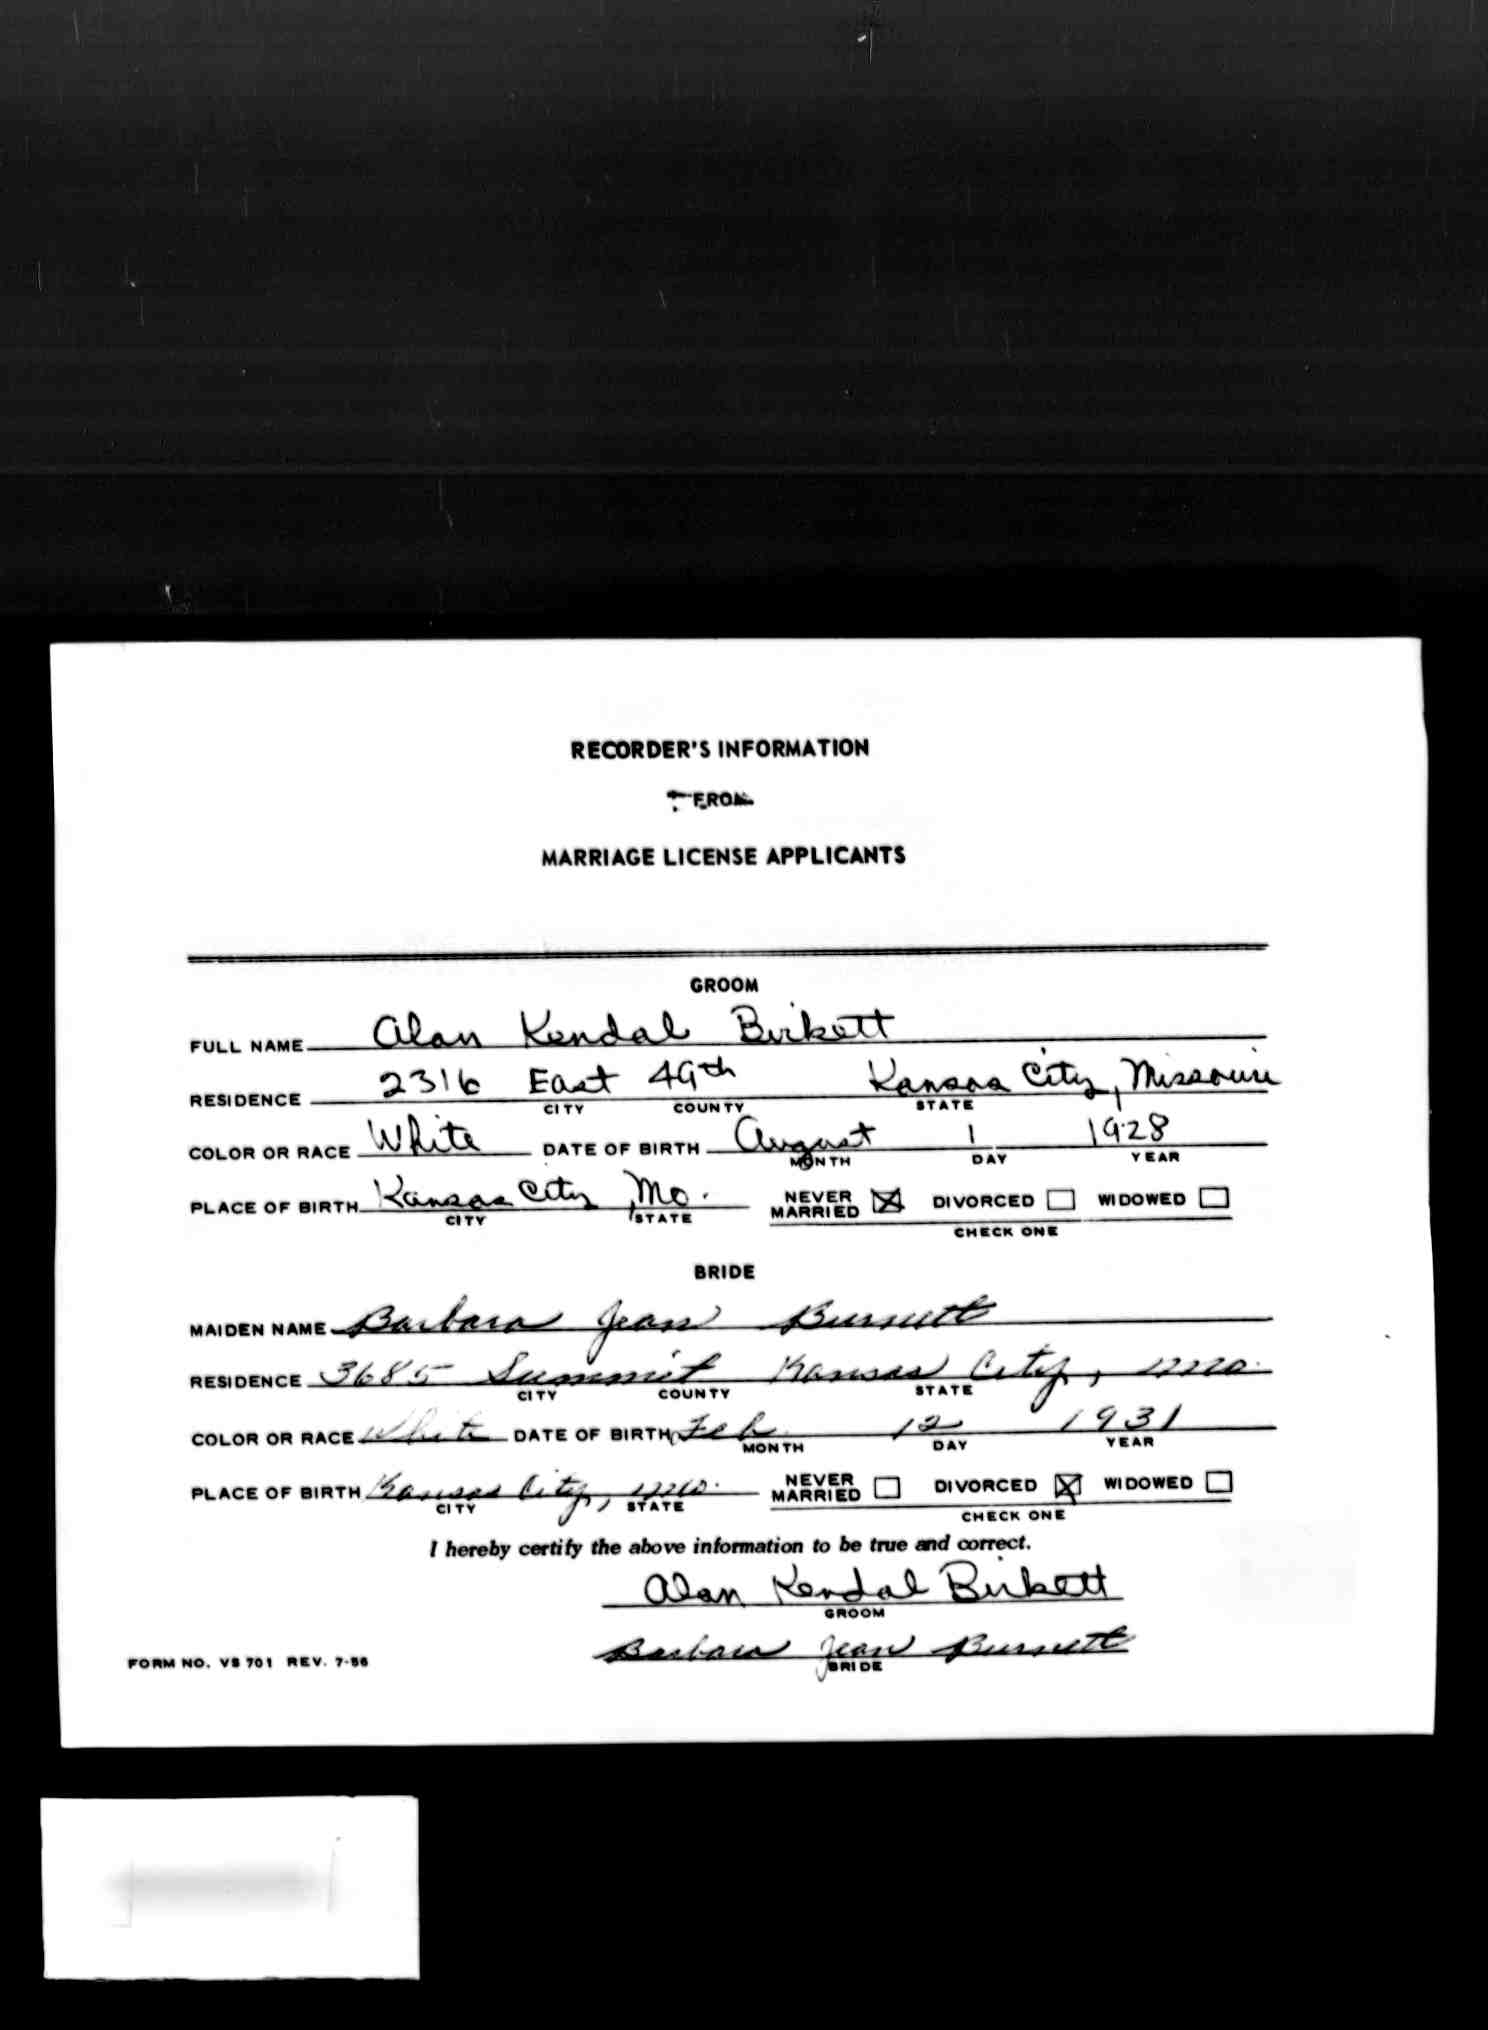 RECORDER'S INFORMATION
FROM
MARRIAGE LICENSE APPLICANTS
GROOM
FULL NAME Alan Kendal Birkett
RESIDENCE 2316 East 49th Kansas City, Missouri
CITY COUNTY STATE
COLOR OR RACE White DATE OF BIRTH August 1 1928
MONTH DAY YEAR
PLACE OF BIRTH Kansas City, Mo. NEVER MARRIED ☒ DIVORCED ☐ WIDOWED ☐
CITY STATE CHECK ONE
BRIDE
MAIDEN NAME Barbara Jean Burnett
RESIDENCE 3685 Summit Kansas City, Mo.
CITY COUNTY STATE
COLOR OR RACE White DATE OF BIRTH Feb. 12 1931
MONTH DAY YEAR
PLACE OF BIRTH Kansas City, Mo. NEVER MARRIED ☐ DIVORCED ☒ WIDOWED ☐
CITY STATE CHECK ONE
I hereby certify the above information to be true and correct.
Alan Kendal Birkett
GROOM
Barbara Jean Burnett
BRIDE
FORM NO. VS 701 REV. 7-56